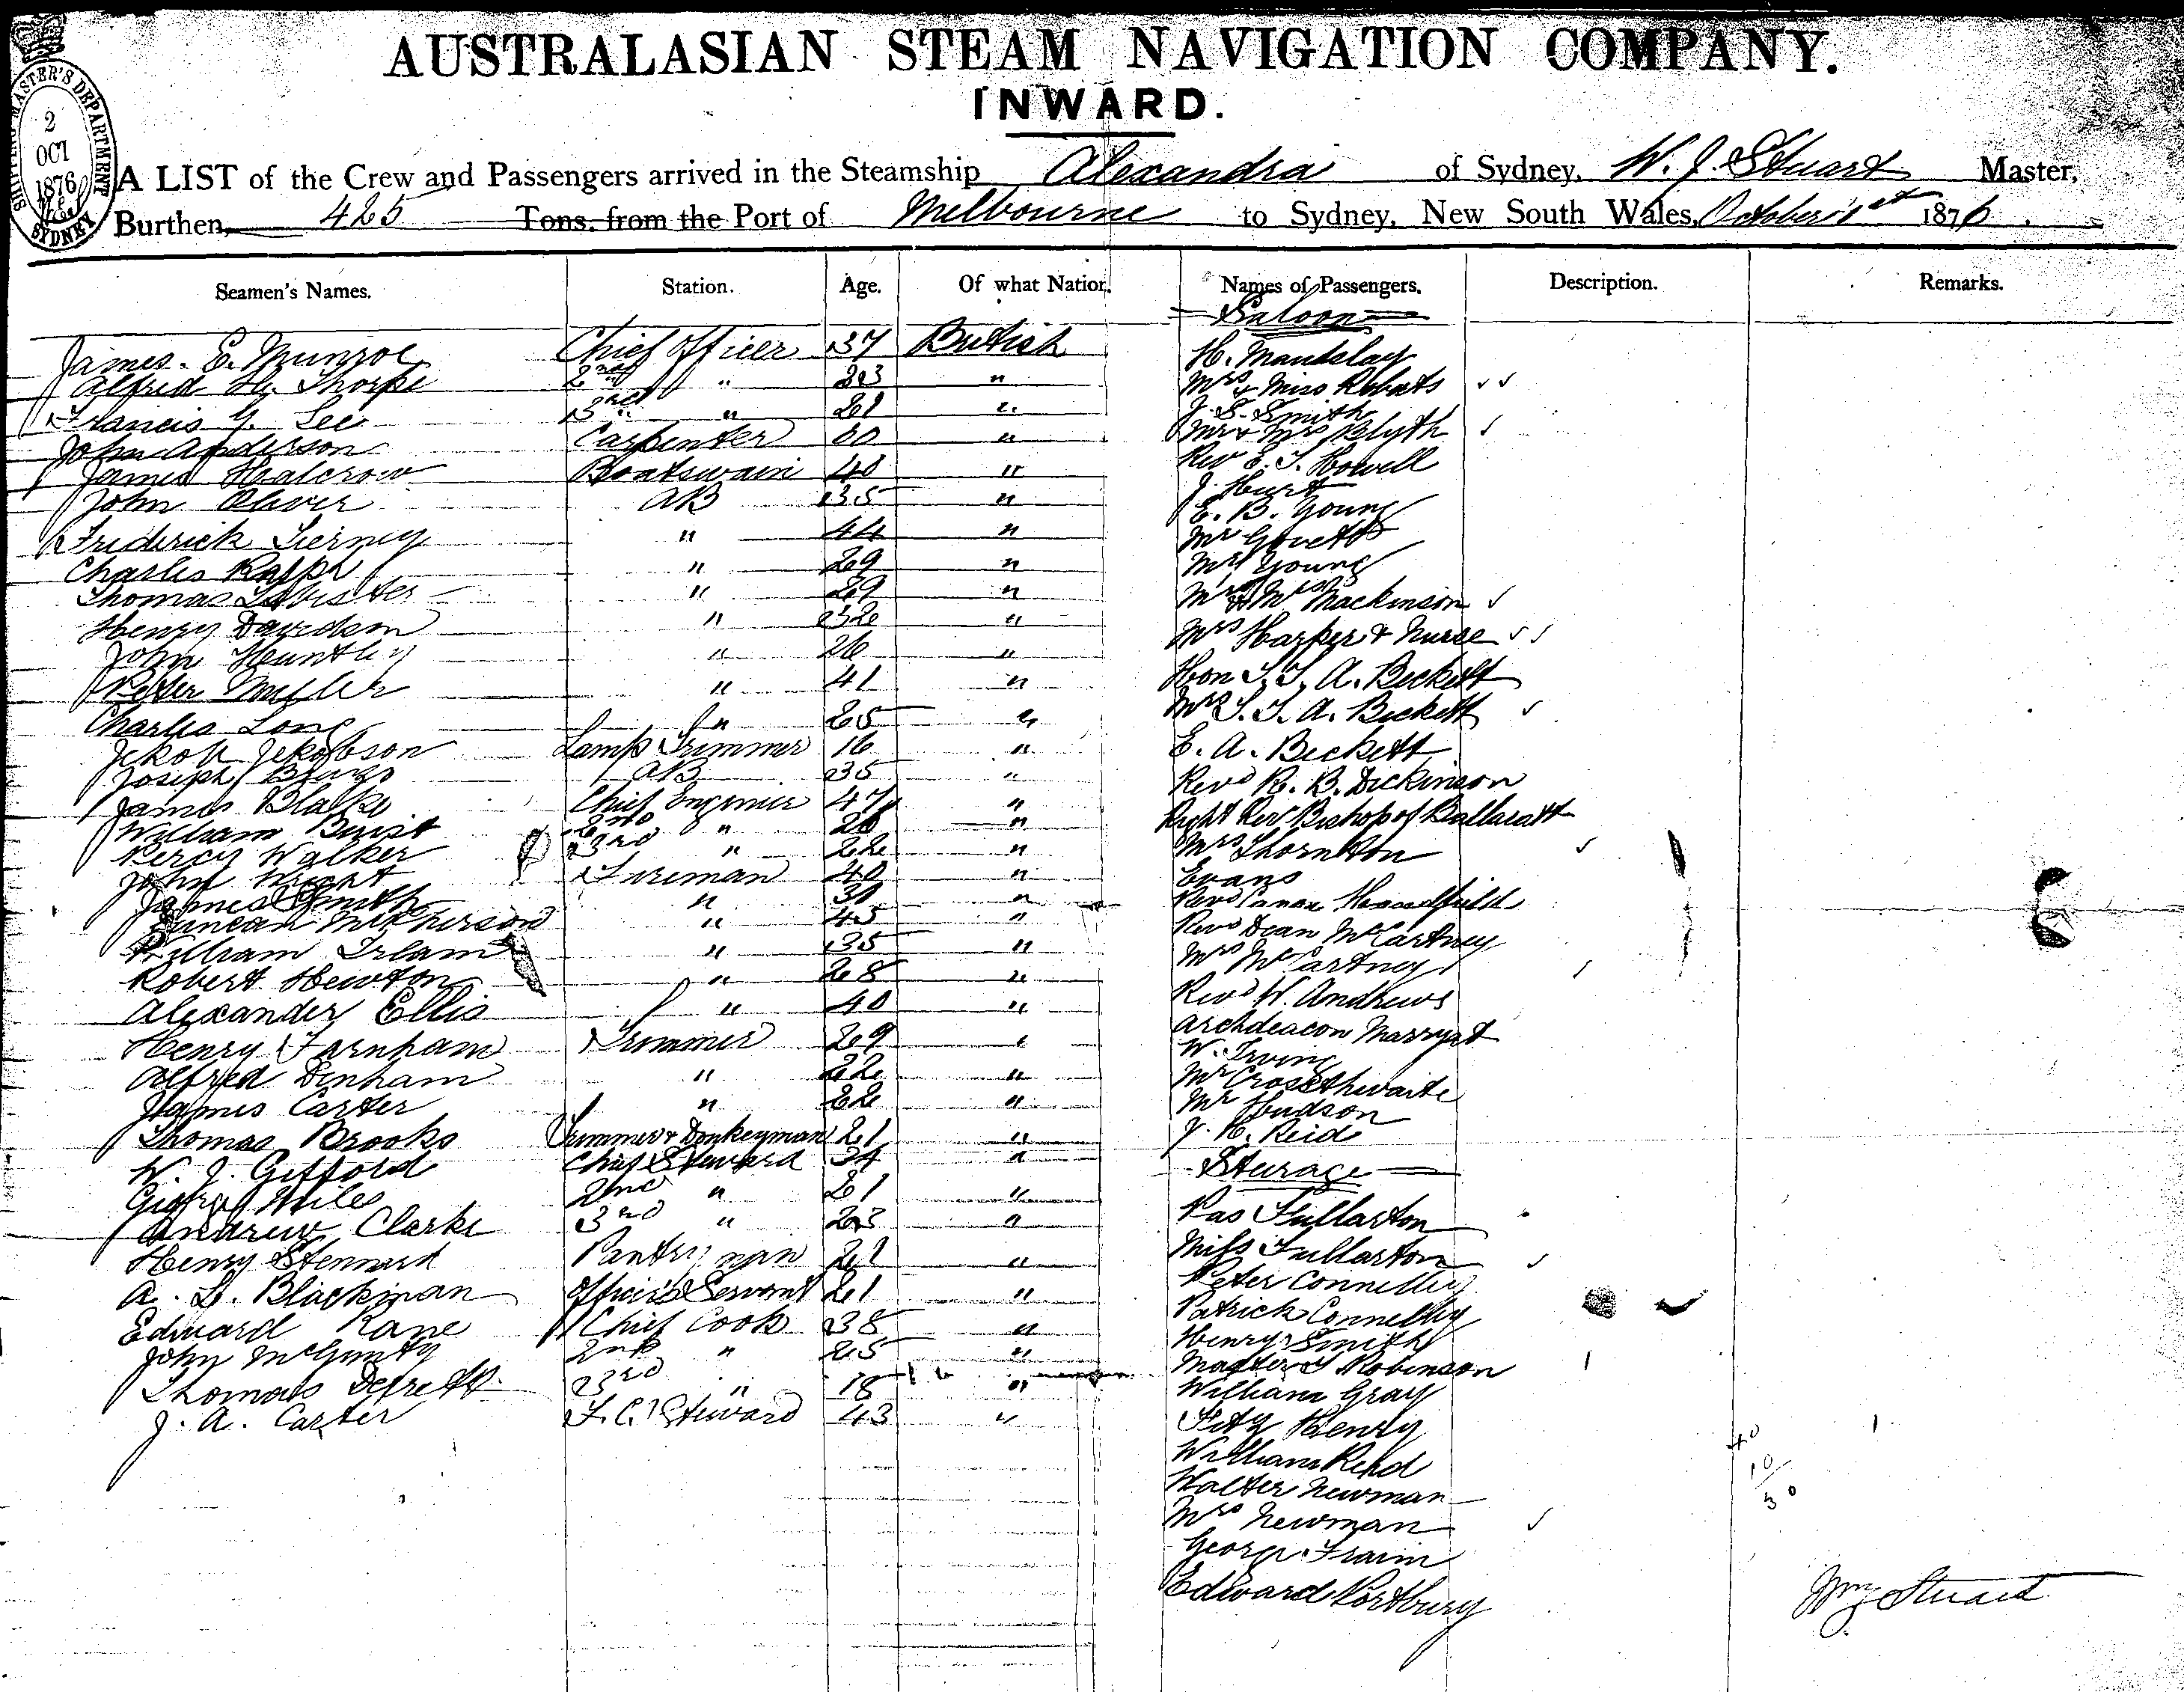 AUSTRALASIAN STEAM NAVIGATION COMPANY.
INWARD.
SHIPPING MASTER'S DEPARTMENT
2
OCT
1876
SYDNEY
A LIST of the Crew and Passengers arrived in the Steamship Alexandra of Sydney, W. J. Stuart Master,
Burthen, 425 Tons, from the Port of Melbourne to Sydney, New South Wales, October 1st 1876.
Seamen's Names. Station. Age. Of what Nation. Names of Passengers. Description. Remarks.
Saloon
James. E. Munroe Chief Officer 37 British H. Mandelay
Alfred H. Thorpe 2nd " 23 " Mrs & Miss Robats
Francis G. Lee 3rd " 21 " J. S. Smith
John Anderson Carpenter 60 " Mr & Mrs Blyth
James Halcrow Boatswain 40 " Rev E. T. Howell
John Oliver AB 35 " J. Hurt
Frederick Tierney " 44 " E. B. Young
Mr Govett
Charles Ralph " 29 " Mrs Young
Thomas " 29 " Mr & Mrs Mackinson
Henry Davidson " 32 " Mrs Harper & Nurse
John Huntley " 26 "
Peter Miller " 41 " Hon T. T. A. Beckett
Charles Long " 25 " Mrs T. T. A. Beckett
Jekob Jekobson Lamp Trimmer 16 " E. A. Beckett
Joseph AB 35 " Revd R. B. Dickinson
James Blake Chief Engineer 47 " Right Rev Bishop of Ballaratt
William Buist 2nd " 26 "
Percy Walker 3rd " 22 " Mrs Thornton
John Wright Fireman 40 " Evans
James Smith " 30 " Revd Canon
Duncan McPherson " 45 " Revd Dean McCartney
William Irlam " 35 " Mrs McCartney
Robert Hewton " 28 "
Alexander Ellis " 40 " Revd W. Andrews
Henry Farnham Trimmer 29 " Archdeacon Marryat
W. Irving
Alfred Denham " 22 " Mr Crossthwaite
James Carter " 22 " Mr Hudson
Thomas Brooks Trimmer & Donkeyman 21 " J. H. Reid
W. J. Gifford Chief Steward 34 " Sturage
George Miles 2nd " 21 "
Andrew Clarke 3rd " 23 " Pas Fullarton
Henry Stennard Pantryman 21 " Miss Fullarton
A. D. Blackman Officer's Servant 21 " Peter Connelley
Edward Kane Chief Cook 38 " Patrick Connelley
John McGinty 2nd " 25 " Henry Smith
Master Robinson
Thomas 3rd " 18 " William Gray
J. A. Carter F. C. Steward 43 " Fitz Henry
William Reid
Walter Newman
Mrs Newman
George Fraim
Edward Portbury
40
10
30
Wm J Stuart